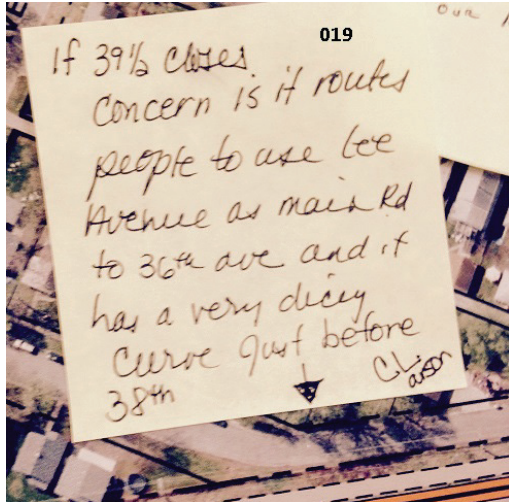 019
our
If 39½ closes.
Concern is it routes
people to use Lee
Avenue as main Rd
to 36th ave and it
has a very dicey
curve just before
38th